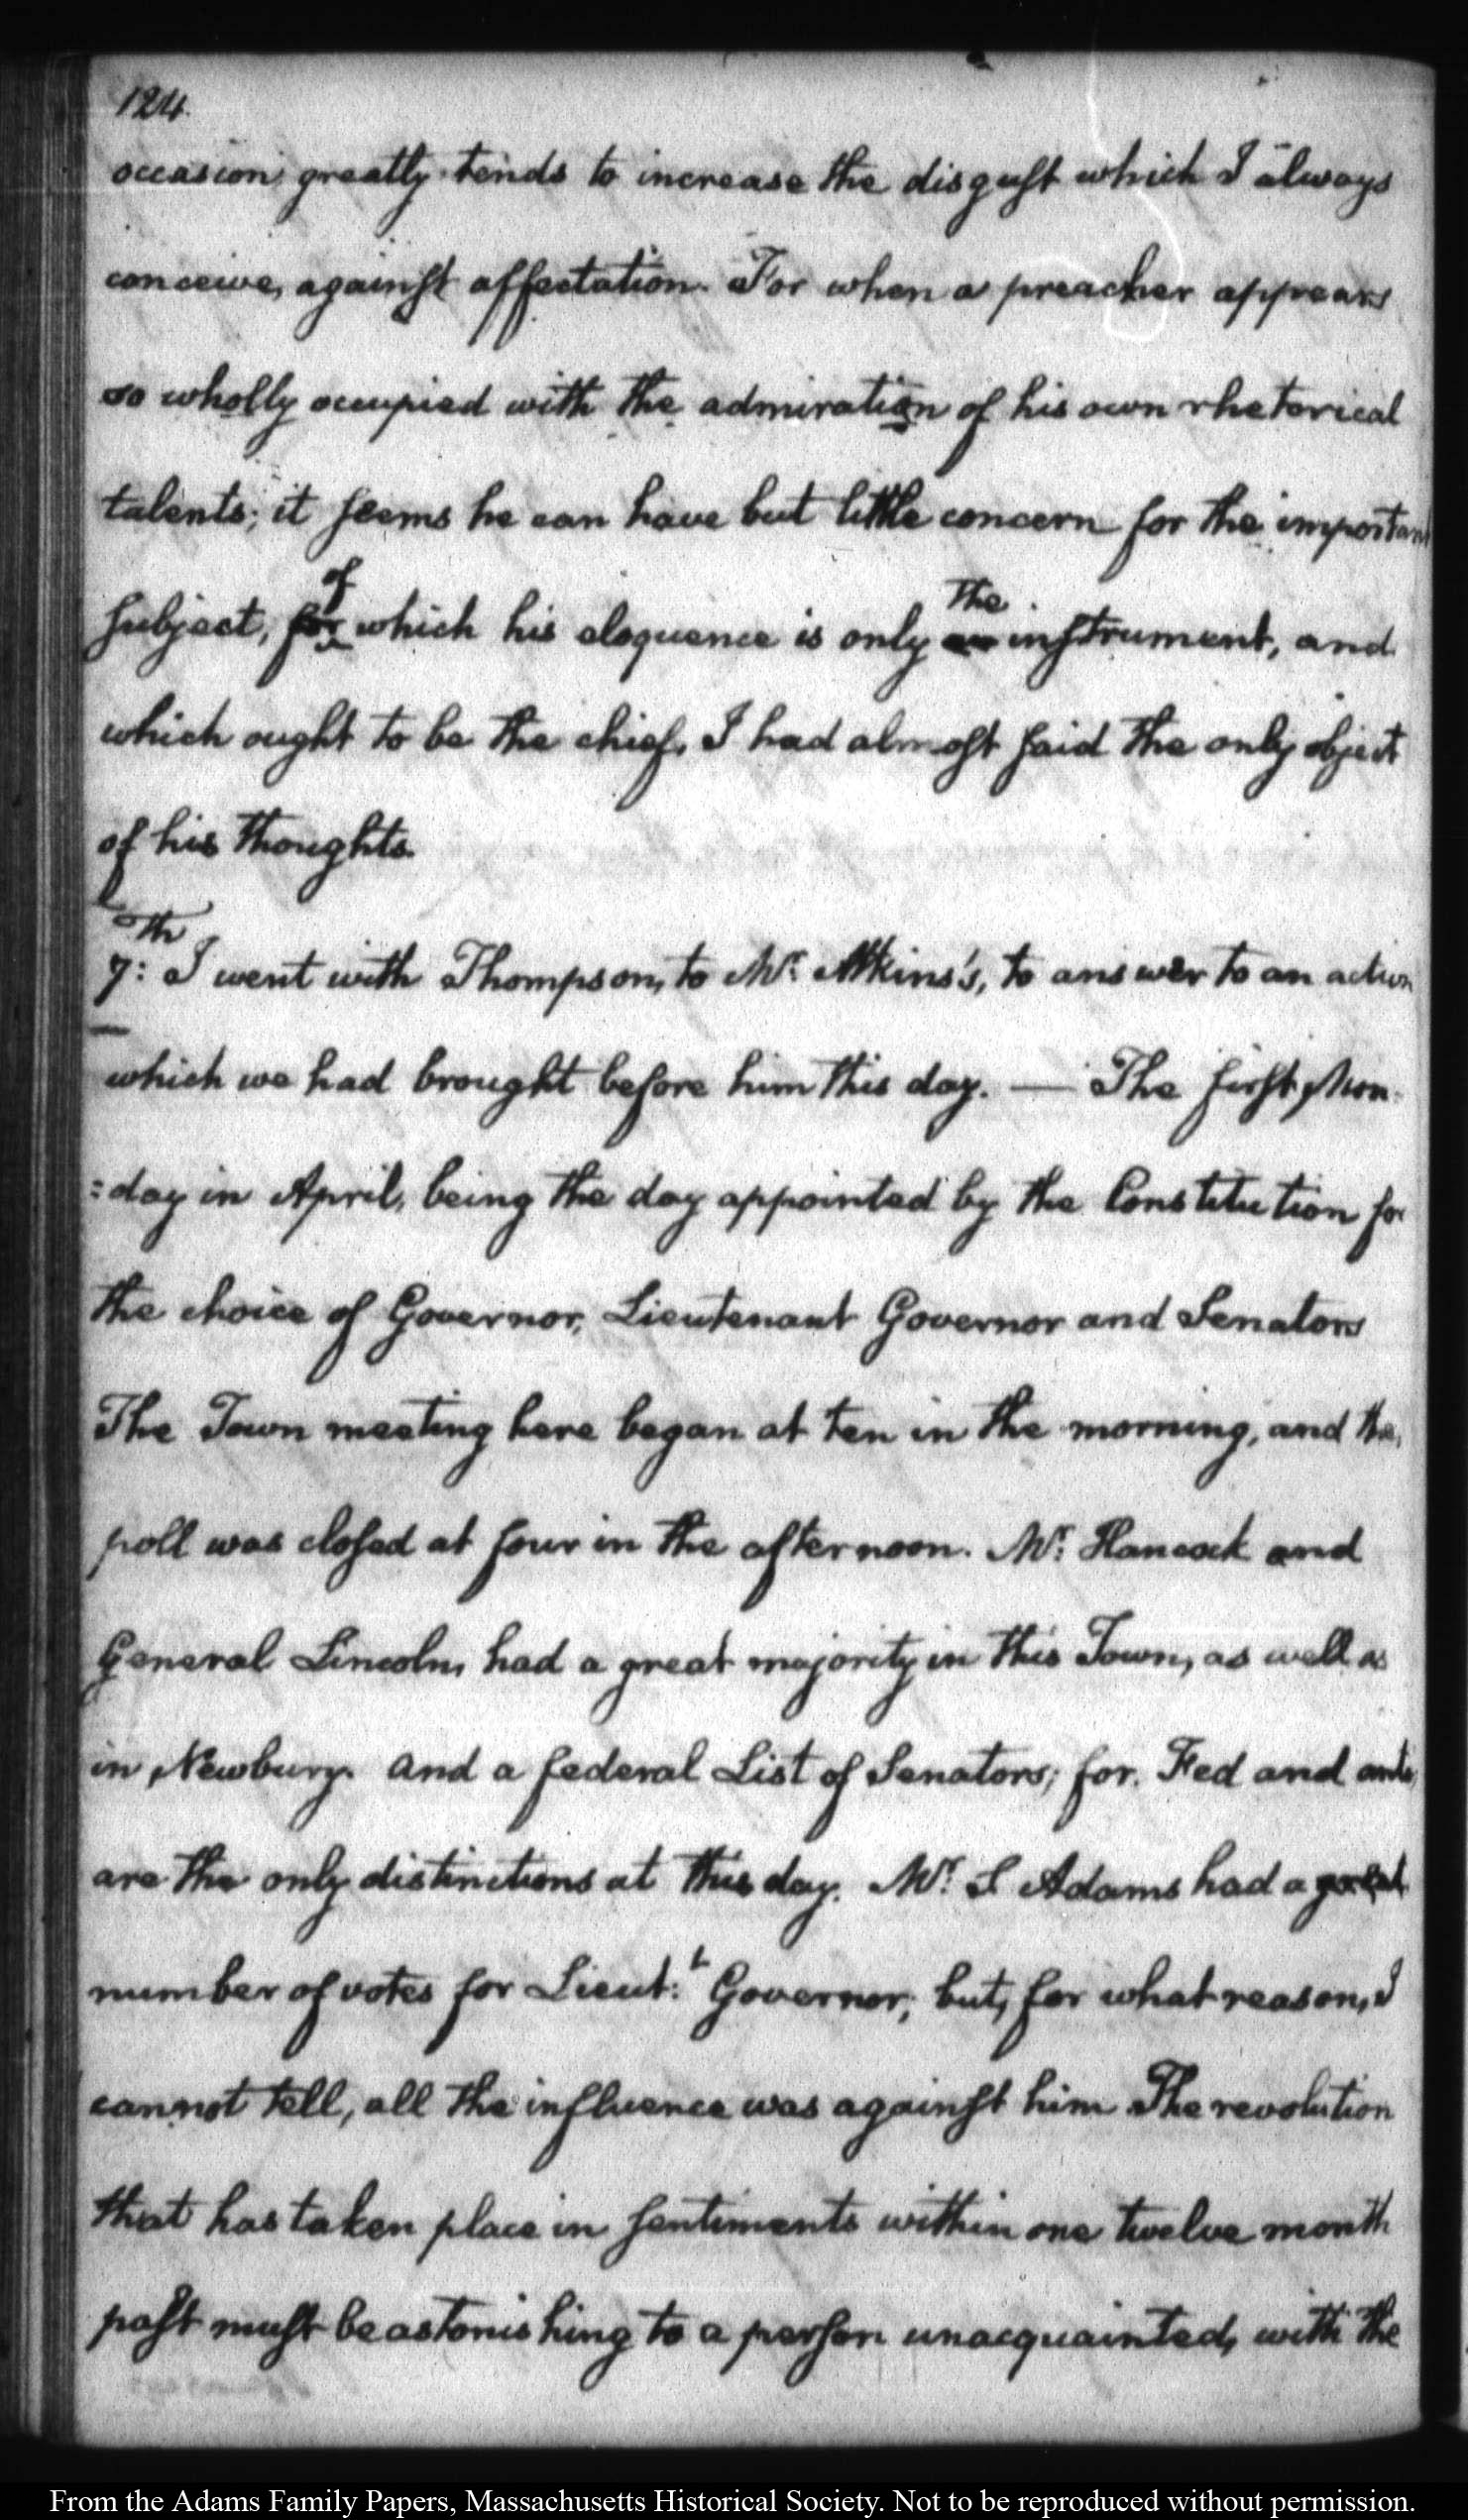 124.
occasion greatly tends to increase the disgust which I always
conceive, against affectation. For when a preacher appears
so wholly occupied with the admiration of his own rhetorical
talents; it seems he can have but little concern for the important
of The
subject, for which his eloquence is only an instrument, and
which ought to be the chief, I had almost said the only object
of his thoughts.
7:th I went with Thompson, to Mr. Atkins's, to answer to an action
which we had brought before him this day. — The first Mon-
=day in April, being the day appointed by the Constitution for
the choice of Governor, Lieutenant Governor and Senators
The Town meeting here began at ten in the morning, and the
poll was closed at four in the afternoon. Mr: Hancock and
General Lincoln, had a great majority in this Town, as well as
in Newbury. And a federal List of Senators; for. Fed and anti,
are the only distinctions at this day. Mr: S Adams had a great
number of votes for Lieut:t Governor; but, for what reason, I
cannot tell, all the influence was against him The revolution
that has taken place in sentiments within one twelve month
past must be astonishing to a person unacquainted, with the
From the Adams Family Papers, Massachusetts Historical Society. Not to be reproduced without permission.